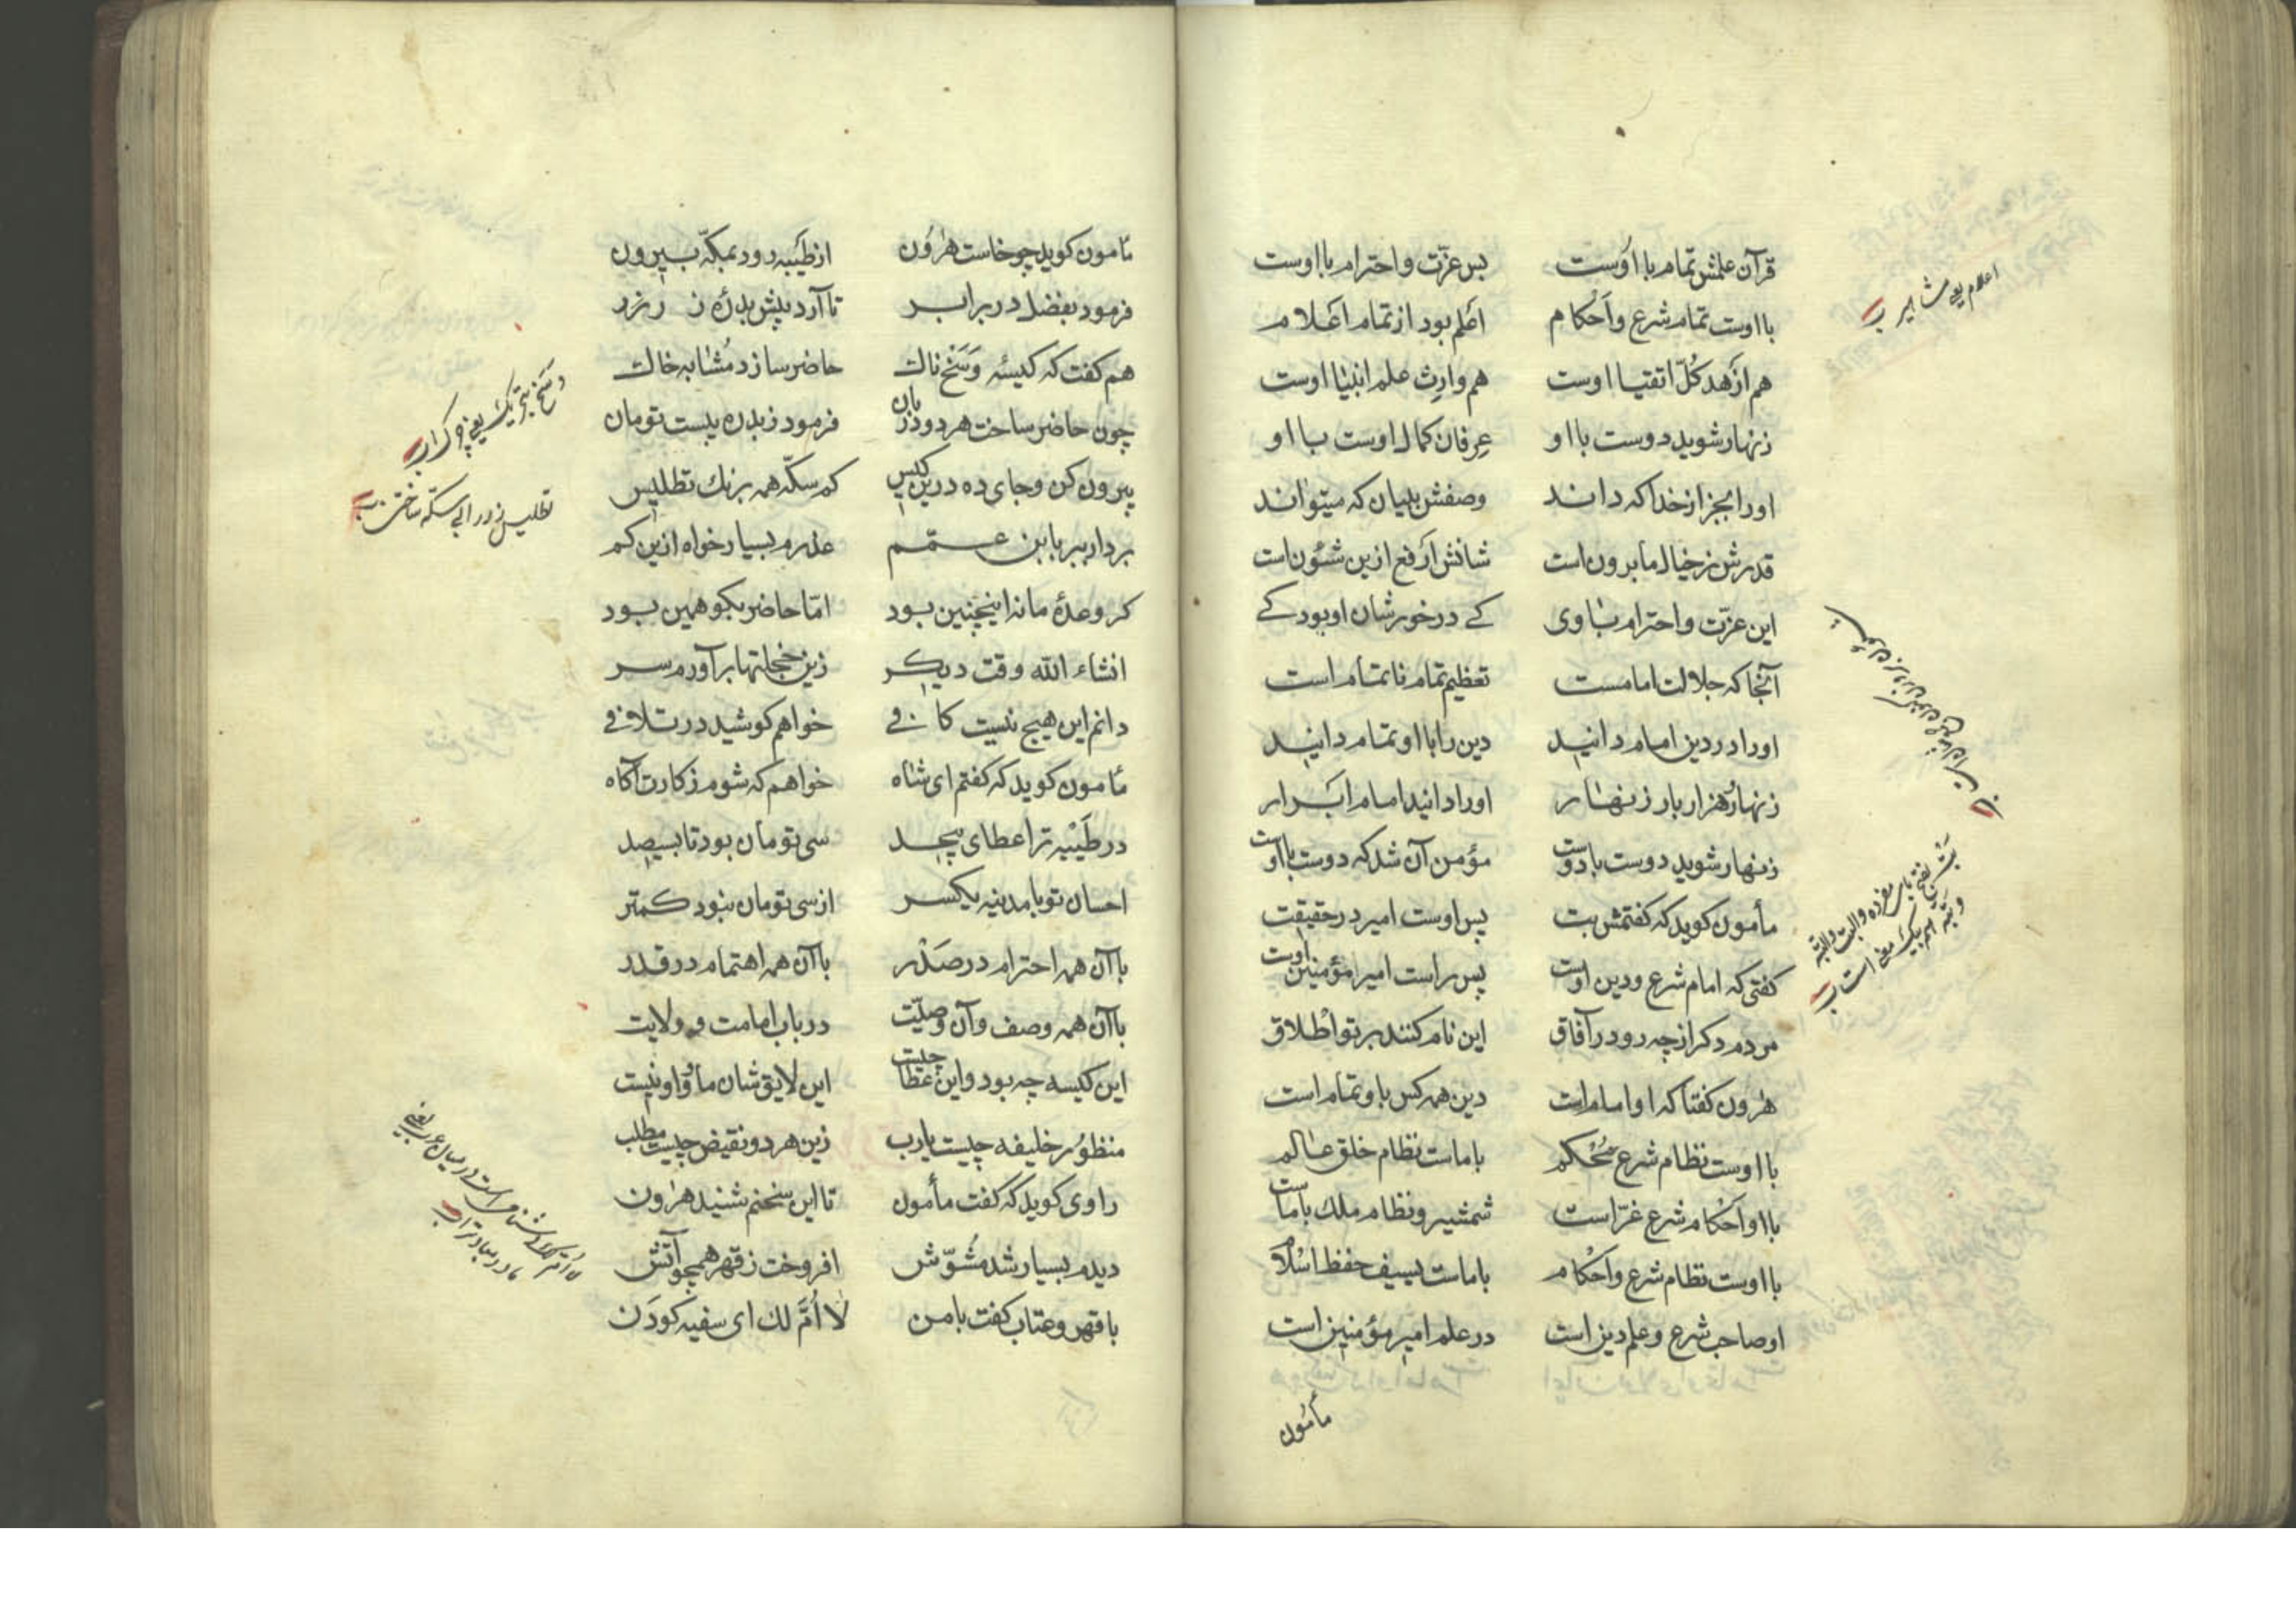 قرآن علمش تمام با اوست بس عزّت و احترام با اوست
با اوست تمام شرع و احکام اعلم بود از تمام اعلام
هم ازهد کلّ اتقیا اوست هم وارث علم انبیا اوست
زنهار شوید دوست با او عرفان کمال اوست با او
اورا بجز از خدا که داند وصفش بلیان که میتواند
قدرش ز خیال ما برون است شانش ارفع ازین شئون است
این عزّت و احترام با وی کے درخور شان او بود کے
آنجا که جلالت امامست تعظیم تمام ناتمام است
اورا در دین امام دانید دین را با او تمام دانید
زنهار هزار بار زنهار اورا دانید امام ابرار
زنهار شوید دوست با دوست مؤمن آن شد که دوست با اوست
مأمون کوید که کفتمش بت پس اوست امیر در حقیقت
کفتی که امام شرع و دین اوست پس راست امیر مؤمنین اوست
مردم دکر از چه رو در آفاق این نام کنند بر تو اطلاق
هرون کفتا که او امام است دین همه کس باو تمام است
با اوست نظام شرع محکم با ماست نظام خلق عالم
با او احکام شرع غرّاست شمشیر و نظام ملک با ماست
با اوست نظام شرع و احکام با ماست بسیف حفظ اسلام
او صاحب شرع و علم دین است در علم امیر مؤمنین است
مأمون
اعلام یعنی مشاهیر
مأمون کوید چو خاست هرون از طیبه رود بمکّه بیرون
فرمود بفضل در برابر تا آرد پیش بدره ز زر
هم کفت که کیسهٔ وسخ ناک حاضر سازد مشابه خاک
چون حاضر ساخت هر دو دربان فرمود ز بدره بیست تومان
بیرون کن و جای ده درین کیس کم سکّه همه برنک تطلیس
بردار ببر بابن عمّم عذرم بسیار خواه ازین کم
کر وعدهٔ ما نه اینچنین بود امّا حاضر بکو همین بود
انشاء الله وقت دیکر زین خجلتها برآورم سر
دانم این هیچ نیست کافی خواهم کوشید در تلافی
مأمون کوید که کفتم ای شاه خواهم که شوم ز کارت آکاه
در طیبه ترا عطای بیحد سی تومان بود تا بسیصد
احسان تو با مدنیه یکسر از سی تومان نبود کمتر
با آن همه احترام در صدر با آن همه اهتمام در قدر
با آن همه وصف و آن وصیّت در باب امامت و ولایت
این کیسه چه بود و این عطا چیست این لایق شان ما و او نیست
منظور خلیفه چیست یارب زین هر دو نقیض چیست مطلب
راوی کوید که کفت مأمون تا این سخنم شنید هرون
دیدم بسیار شد مشوّش افروخت ز قهر همچو آتش
با قهر و عتاب کفت با من لا اُمَّ لك ای سفیه کودن
وسخ بتحریک یعنی چرک